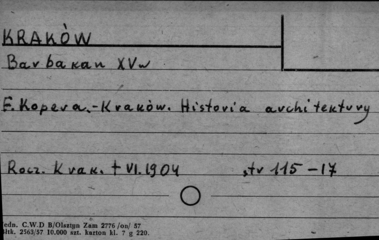 KRAKÒW
Barbakan XVw
F. Kopera.-Kraków. Historia architektury
Rocz. Krak. t VI.1904 str 115-17
edn. C.W.D B/Olsztyn Zam 2776 /oo/ 57
dltk. 2563/57 10.000 szt. karton kl. 7 g 220.